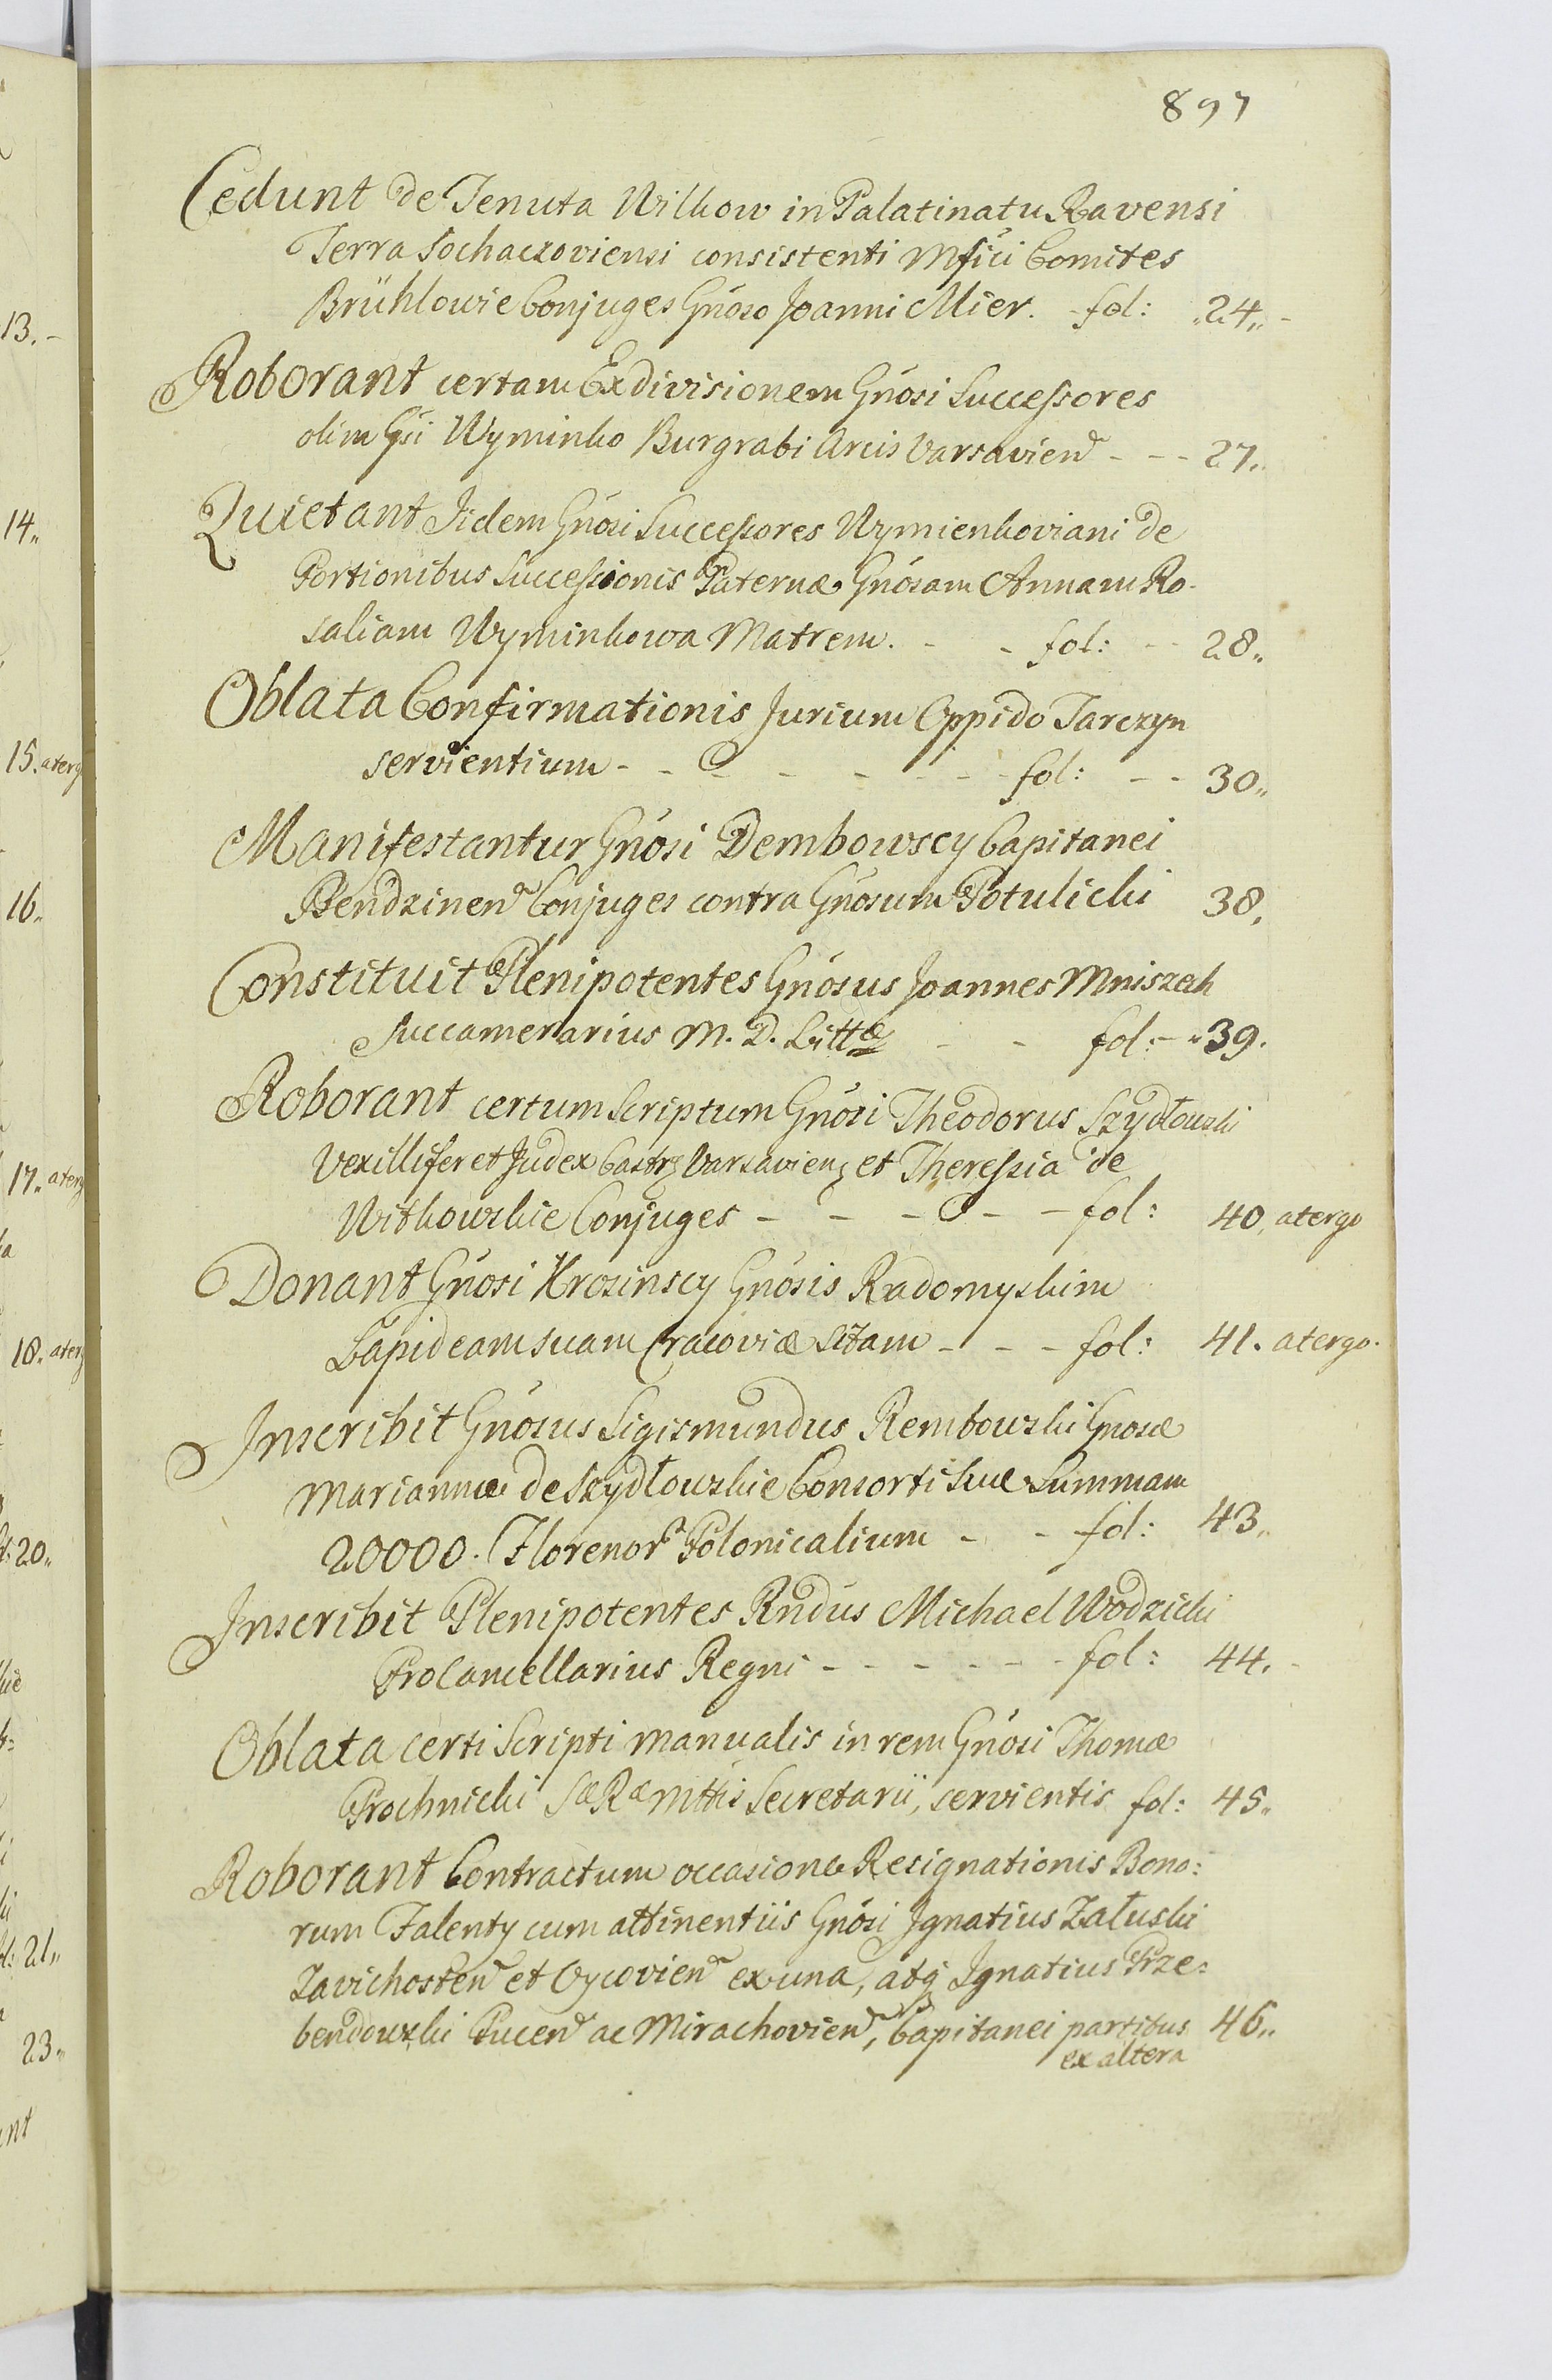 897
Cedunt de Tenuta Wilkow in Palatinatu Ravensi
Terra Sochaczoviensi consistenti Mfici Comites
Brühlowie Conjuges Gnoso Joanni Mier. - fol: 24
Roborant certam Exdivisionem Gnosi Successores
olim Gsi Wyminko Burgrabi Arcis Varsavien - - - 27
Quietant Iidem Gnosi Successores Wymienkoviani de
Portionibus Successionis Paternæ Gnosam Annam Ro-
saliam Wyminkowa Matrem. - - fol: - - 28
Oblata Confirmationis Jurium Oppido Tarczyn
servientium - - - - - - - fol: - - 30
Manifestantur Gnosi Dembowscy Capitanei
Bendzinen Conjuges contra Gnosum Potulicki 38
Constituit Plenipotentes Gnosus Joannes Mniszeh
Succamerarius M. D. Littæ - - fol: - 39.
Roborant certum Scriptum Gnosi Theodorus Szydłowski
Vexillifer et Judex Castr Varsavien et Theressia de
Witkowskie Conjuges - - - - - fol: 40 atergo
Donant Gnosi Krosinscy Gnosis Radomyskim
Lapideam suam Cracoviæ sitam - - - fol: 41. atergo.
Inscribit Gnosus Sigismundus Rembowski Gnosæ
Mariannæ de Szydłowskie Consorti suæ Summam
20000. Florenor Polonicalium - - fol: 43
Inscribit Plenipotentes Rndus Michael Wodzicki
Procancellarius Regni - - - - - - fol: 44. -
Oblata certi Scripti manualis in rem Gnosi Thomæ
Prochnicki S æ R æ Mttis Secretarii, servientis fol: 45
Roborant Contractum occasione Resignationis Bono:
rum Falenty cum attinentiis Gnosi Ignatius Załuski
Zavichosten et Oycovien ex una, atq Ignatius Prze:
bendowski Pucen ac Mirachovien, Capitanei partibus 46
ex altera
13. -
14
15. aterg
16
17 aterg
18. aterg
20
21
23